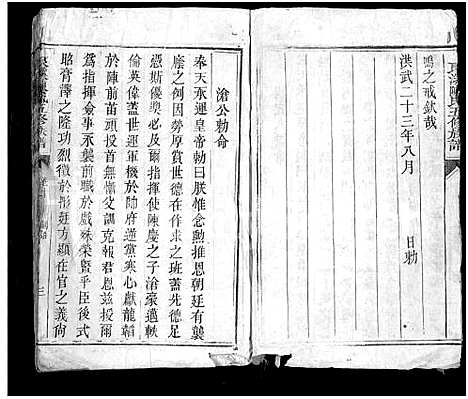 鳴之戒欽哉
洪武二十三年八月
日勅
滄公勅命
奉天承運皇帝勅曰朕惟念勲推恩朝廷有襲
廕之典因勞厚賞世德在作來之班蓋先德足
憑斯優獎必及爾指揮使陳慶之子滄豪邁軼
倫英偉蓋世運軍機於帥府遥黨寒心獻龍韜
於陣前苗頭投首無忝父訓克報君恩兹授爾
爲指揮僉事示襲前職於戲殊榮曁乎臣後式
昭齊澤之隆功烈徵於彤廷方顯在官之義尙
三